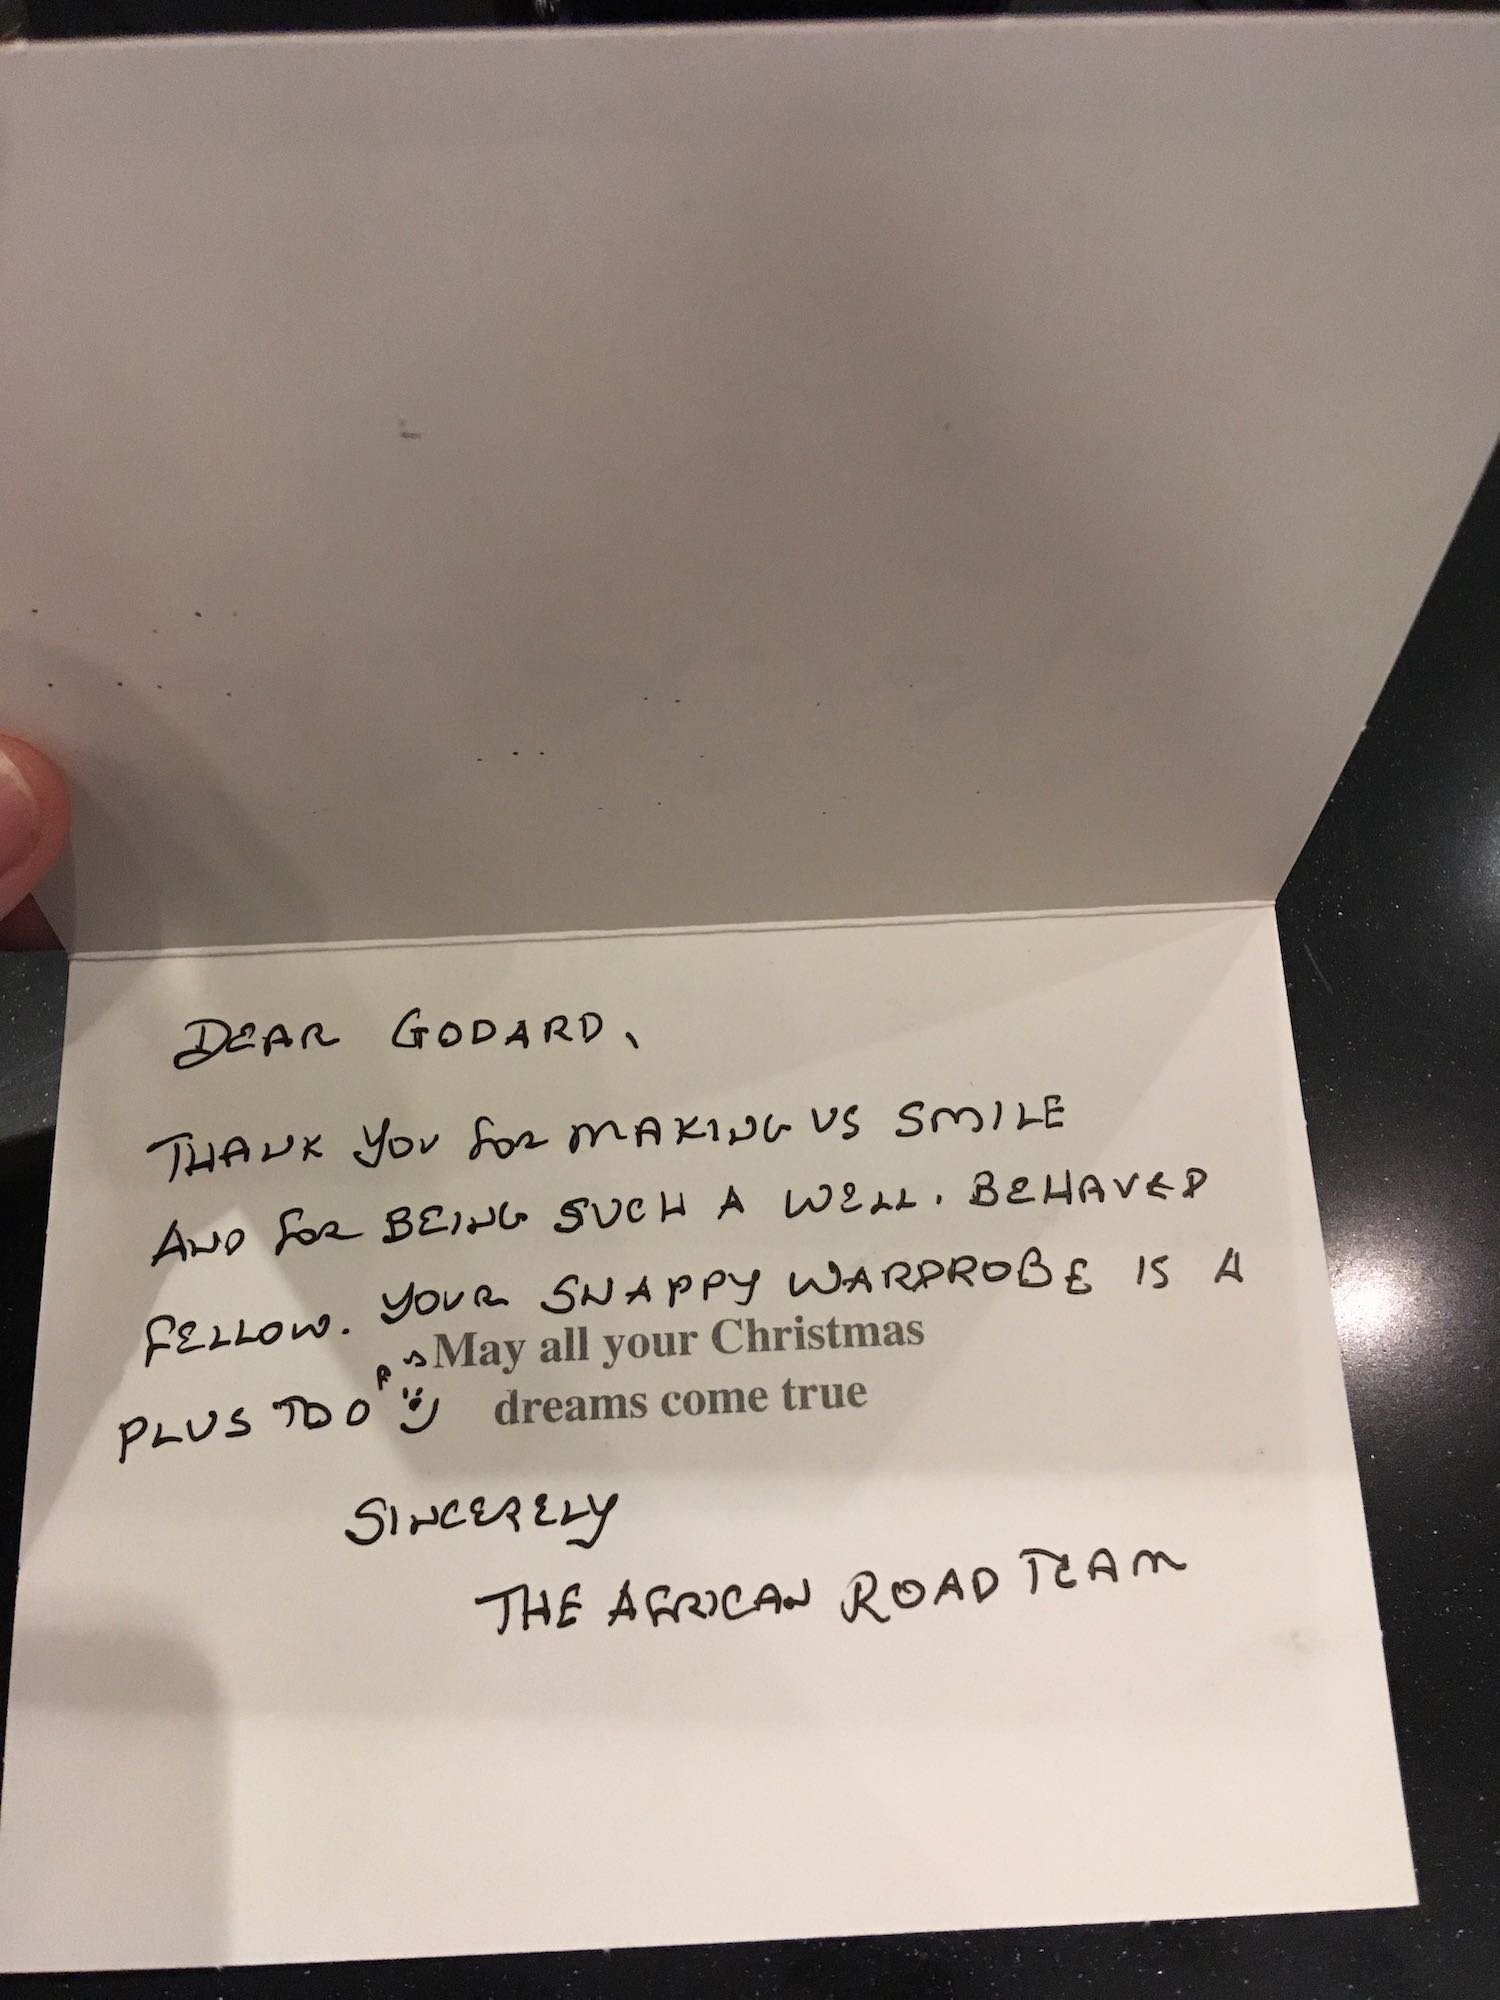 DEAR GODARD,
THANK YOU FOR MAKING US SMILE
AND FOR BEING SUCH A WELL. BEHAVED
FELLOW. YOUR SNAPPY WARDROBE IS A
PLUS TOO
May all your Christmas
dreams come true
SINCERELY
THE AFRICAN ROAD TEAM